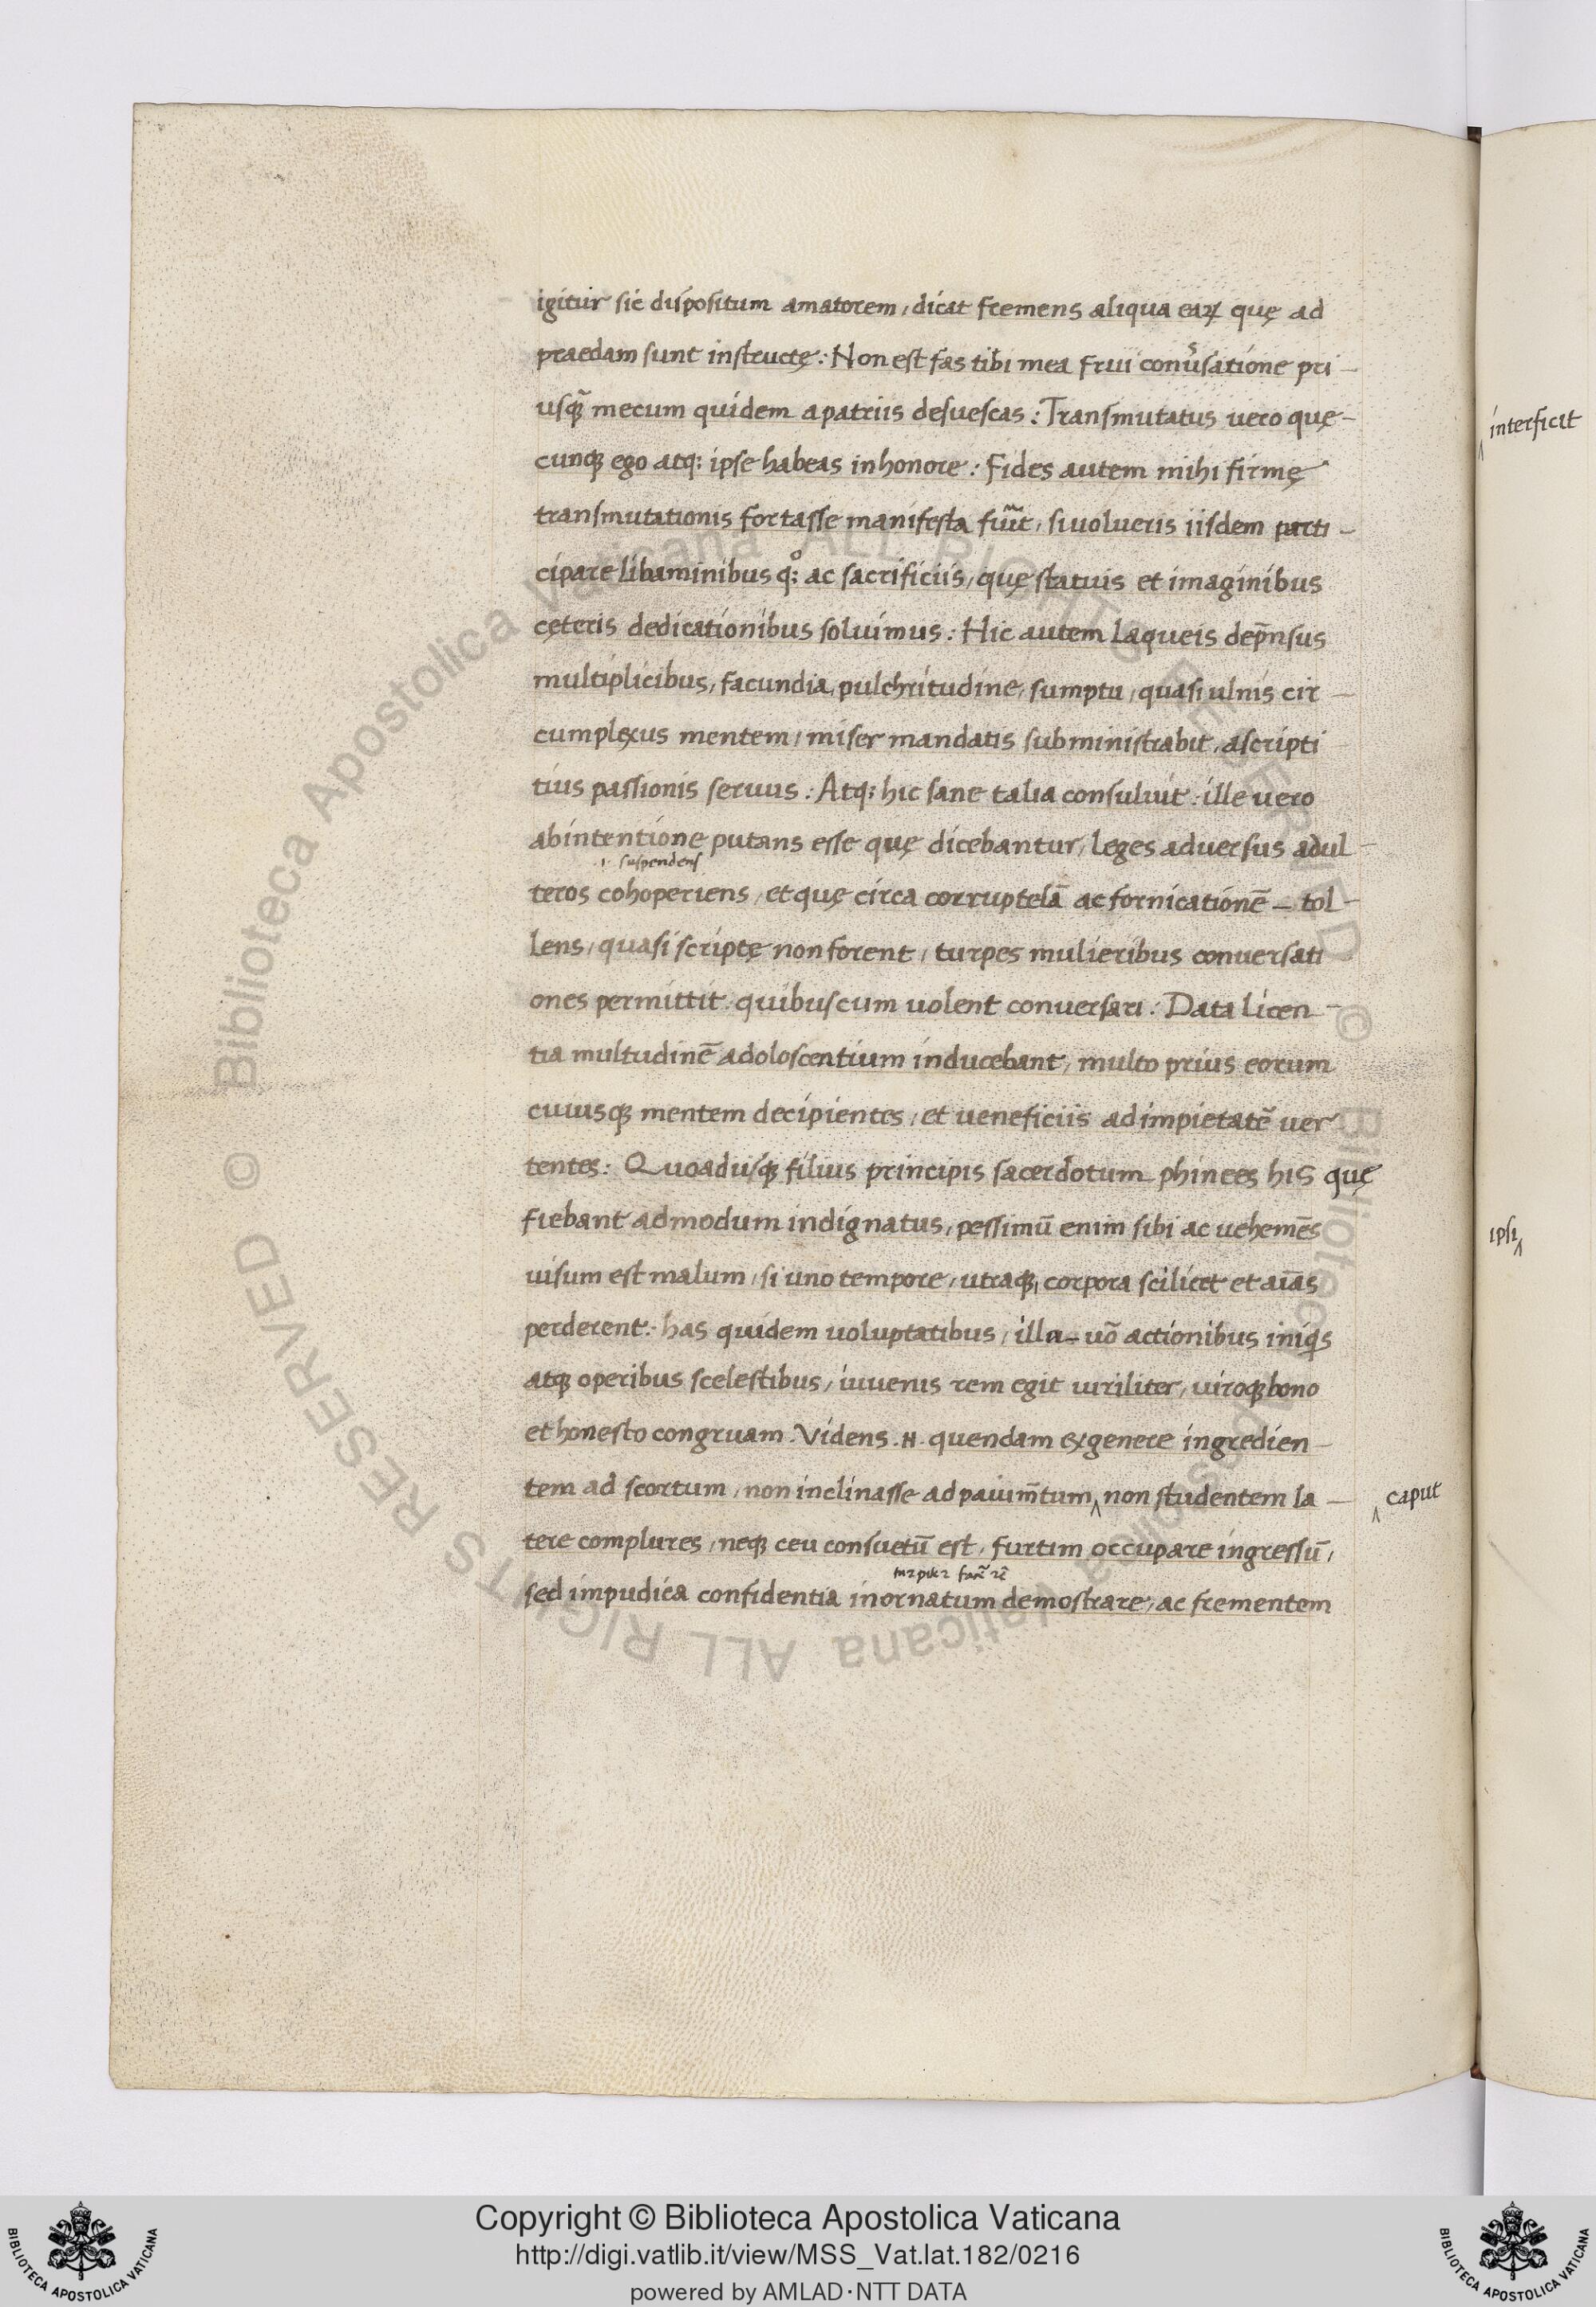 igitur sic dispositum amatorem, dicat fremens aliqua eaꝝ quę ad
praedam sunt instructę: Non est fas tibi mea frui conûsatione pri-
usꝗ̃ mecum quidem a patriis desuescas: Transmutatus uero quę-
cunꝗ ego atq: ipse habeas in honore: Fides autem mihi firmę
transmutationis fortasse manifesta fuũt, si uolueris iisdem parti-
cipare libaminibus q: ac sacrificiis, quę statuis et imaginibus
cęteris dedicationibus soluimus: Hic autem laqueis dep̃nsus
multiplicibus, facundia, pulchritudine, sumptu, quasi ulnis cir-
cumplexus mentem, miser mandatis subministrabit, ascripti
tius passionis seruus: Atq: hic sane talia consuluit: ille uero
ab intentione putans esse quę dicebantur, leges aduersus adul-
.i. suspendens
teros cohoperiens, et quę circa corruptelã ac fornicationẽ - tol-
lens, quasi scriptę non forent, turpes mulieribus conuersati
ones permittit quibuscum uolent conuersari: Data licen-
tia multudinẽ adoloscentium inducebant, multo prius eorum
cuiusꝗ mentem decipientes, et ueneficiis ad impietatẽ uer
tentes: Quoadusꝗ filius principis sacerdotum phinees his quę
fiebant admodum indignatus, pessimũ enim sibi ac uehemẽs
uisum est malum, si uno tempore, utraꝗ, corpora scilicet et aĩas
perderent: has quidem uoluptatibus, illa - uõ actionibus iniq̃s
atꝗ operibus scelestibus, iuuenis rem egit uiriliter, uiroꝗ bono
et honesto congruam. Videns .N. quendam ex genere ingredien-
tem ad scortum, non inclinasse ad pauim̃tum ‸ non studentem la-
‸ caput
tere complures, neꝗ ceu consuetũ est, furtim occupare ingressũ,
sed impudica confidentia inornatum demostrare, ac frementem
interficit
ipsi‸
Copyright © Biblioteca Apostolica Vaticana
http://digi.vatlib.it/view/MSS_Vat.lat.182/0216
powered by AMLAD·NTT DATA
BIBLIOTECA APOSTOLICA VATICANA
BIBLIOTECA APOSTOLICA VATICANA
© Biblioteca Apostolica Vaticana ALL RIGHTS RESERVED © Biblioteca Apostolica Vaticana ALL RIGHTS RESERVED